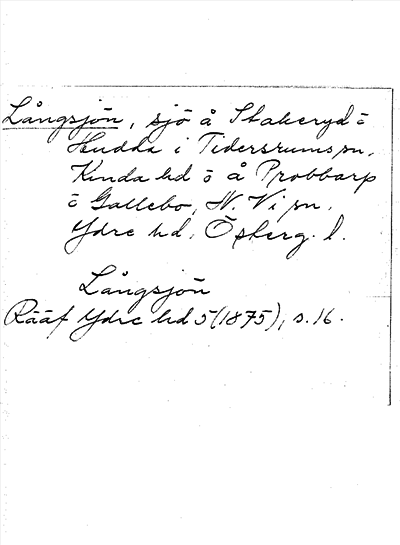 Långsjön, sjö å Stakeryd ō
Hudda i Tidersrums sn,
Kinda hd ō å Probbarp
ō Gallebo, N. Vi sn,
Ydre hd, Österg. l.
Långsjön
Rääf Ydre hd 5 (1875), s. 16.